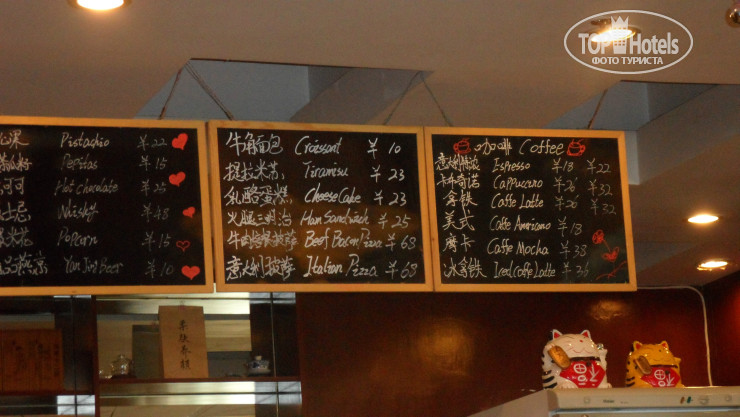 TOP Hotels
ФОТО ТУРИСТА
果 Pistachio ¥22
Pepitas ¥15
可可 Hot chocolate ¥25
士忌 Whisky ¥48
米花 Popcorn ¥15
Yan Jing Beer ¥10
牛角面包 Croissant ¥10
提拉米苏 Tiramisu ¥23
乳酪蛋糕 CheeseCake ¥23
火腿三明治 Ham Sandwich ¥25
牛肉培根披萨 Beef Bacon Pizza ¥68
意大利披萨 Italian Pizza ¥68
咖啡 Coffee
意大利特浓 Espresso ¥18 ¥22
卡布奇诺 Cappuccino ¥26 ¥32
拿铁 Caffe Latte ¥26 ¥32
美式 Caffe Americano ¥18
摩卡 Caffe Mocha ¥38
冰拿铁 Iced Caffe Latte ¥36
福